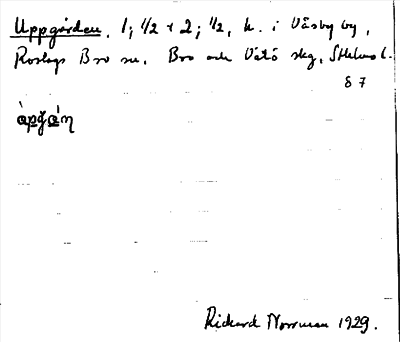 Uppgården, 1; 1/2 + 2; 1/2, h. i Väsby by,
Roslags Bro sn. Bro och Vätö skg, Sthlms l.
§ 7
Rickard Norrman 1929.